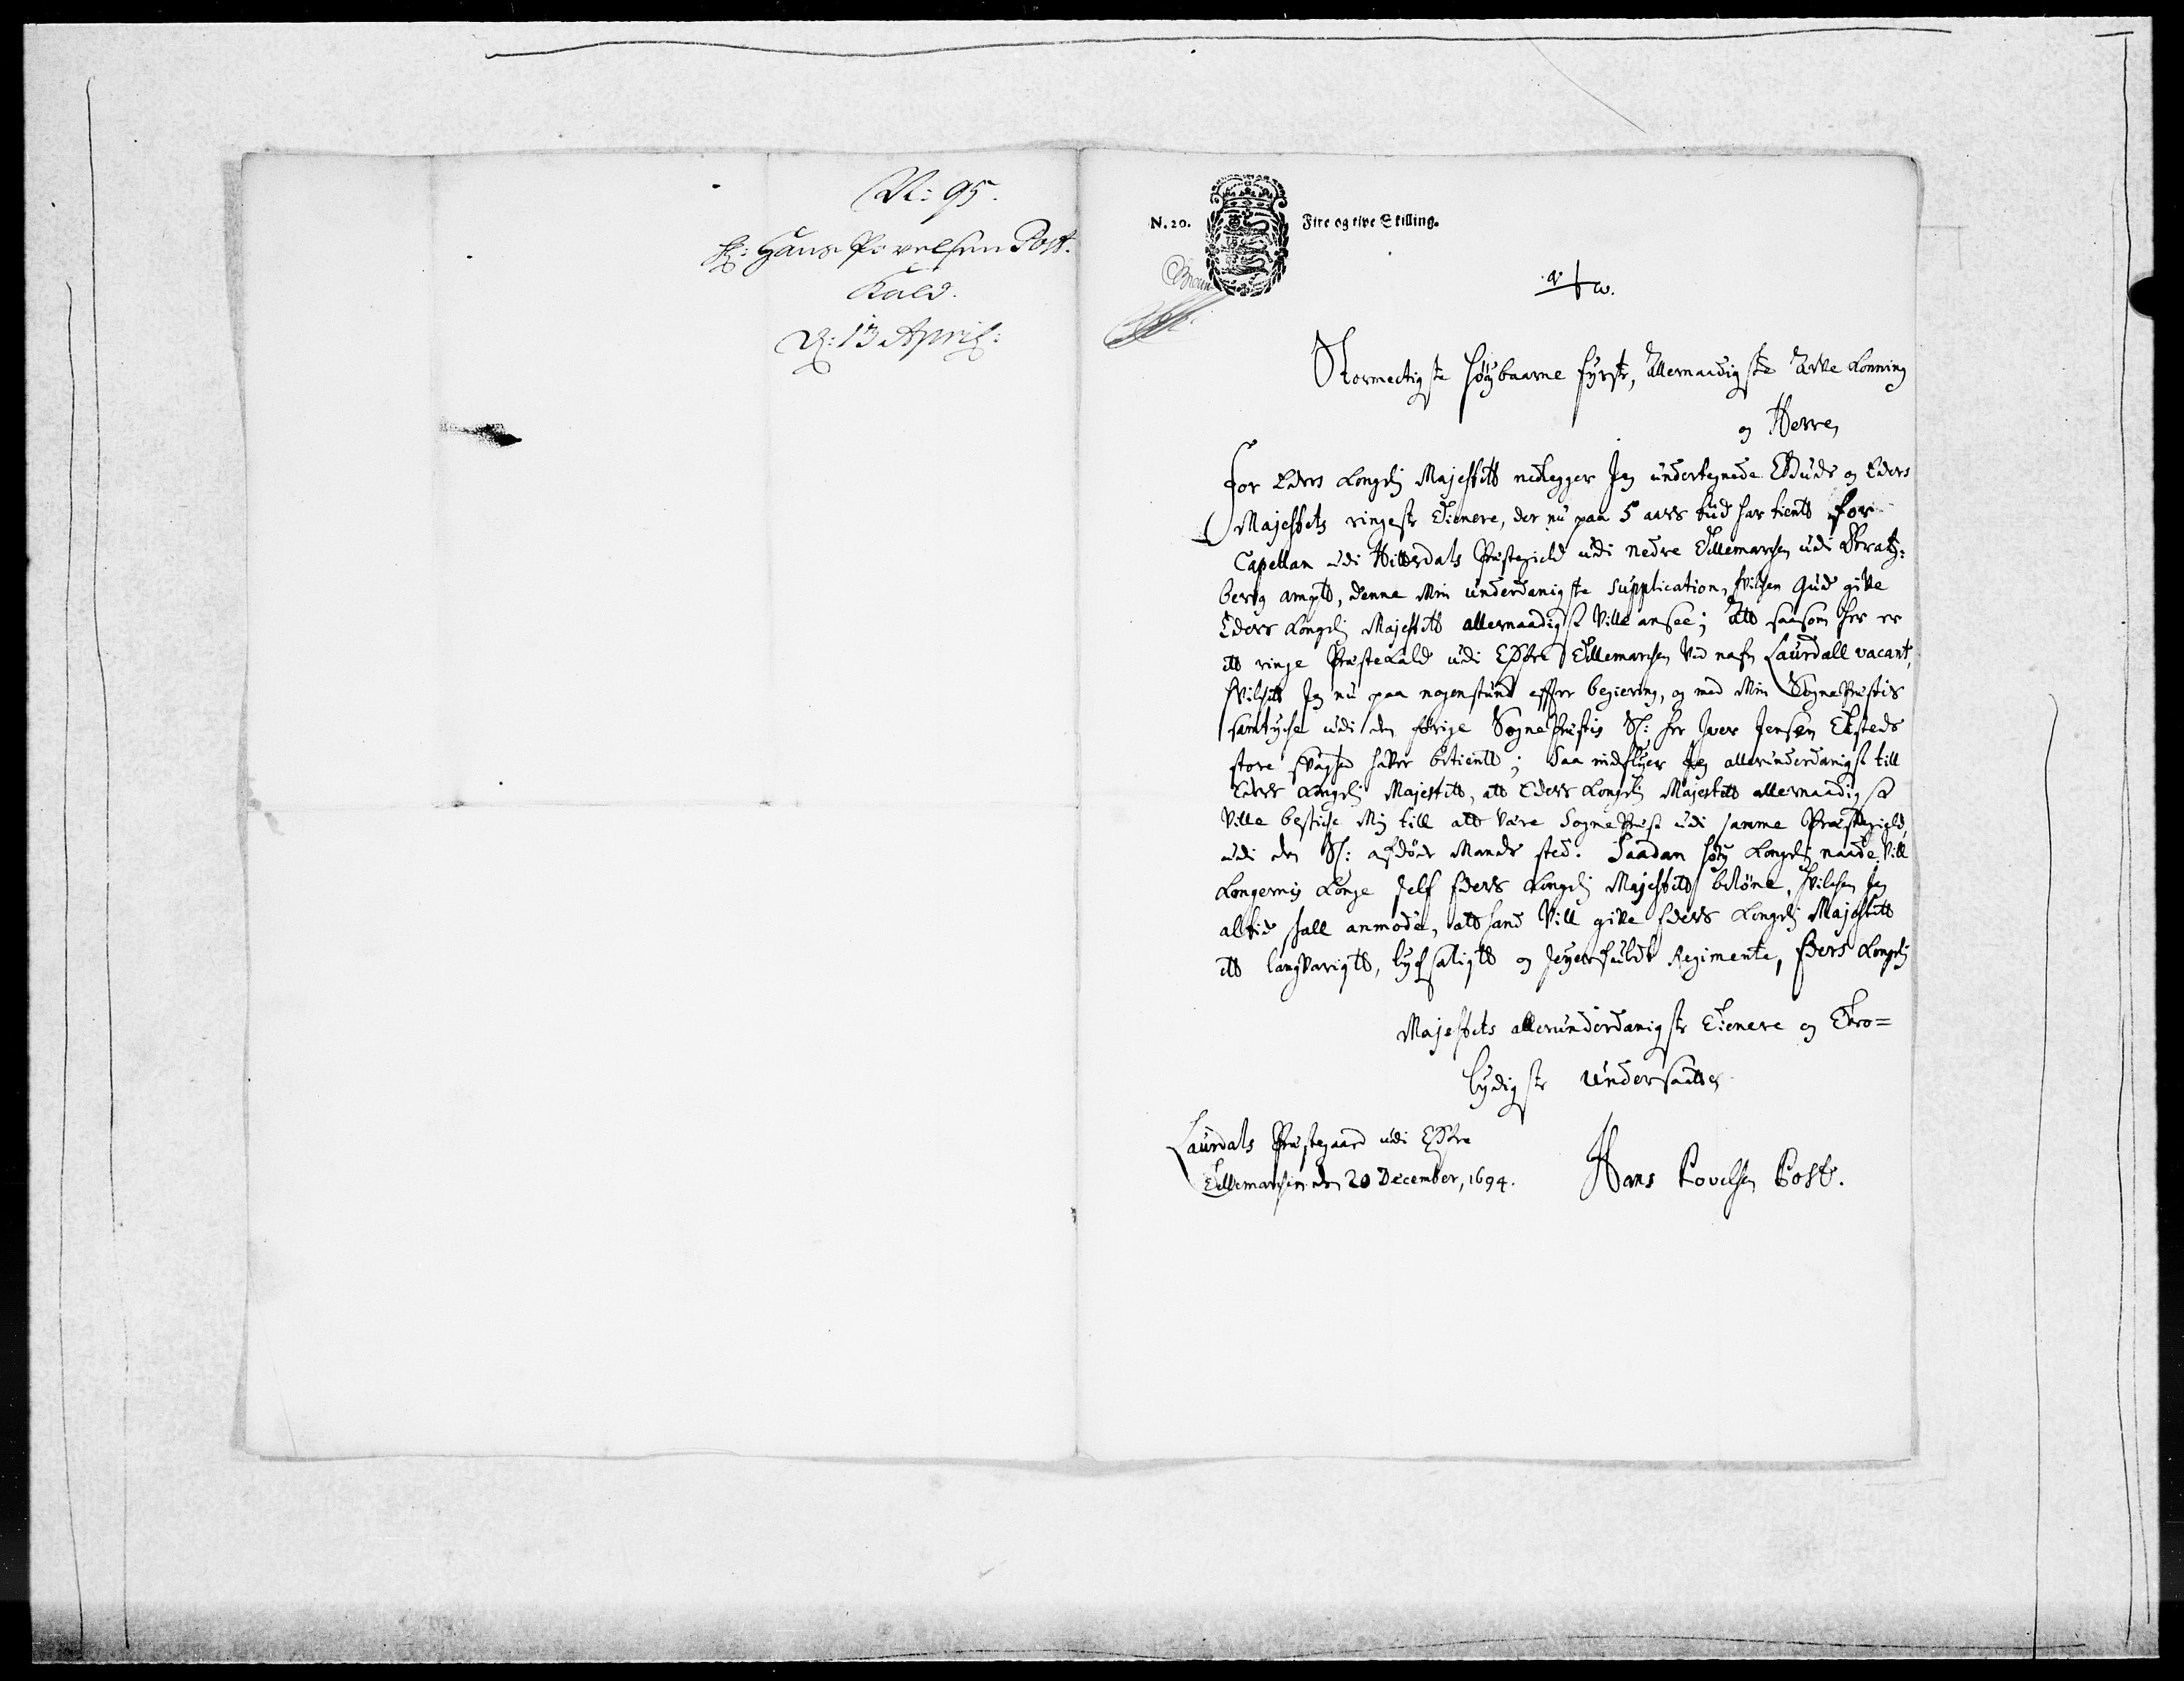 N: 95.
H: Hans Povelsen Post.
Kald.
D: 13 April:
N. 20. Fire og tive Skilling.
α † ω.
Stormectigste høybaarne fyrste, Allernaadigste Arve Konning
og Herre,
For Eders Kongelig Majestett nedlegger Jeg undertegnede Guds og Eders
Majestets ringeste Tienere, der nu paa 5 aars tiid har tient for
Capellan udi Hitterdals Præstegield udi nedre Tillemarchen udi Bratz-
berg ampt, denne Min underdanigste supplication, hvilchen Gud give
Eders Kongelig Majestett allernaadigst Ville ansee; Att saasom her er
ett ringe Præstekald udi Effre Tillemarchen Ved nafn Laurdall vacant,
hvilchett Jeg nu paa nogenstund effter begiering, og med Min SognePræstis
samtyche udi den forige SognePræstis Sl: her Iver Jensen Eksteds
store svaghed haver betient; Saa indflyer Jeg allerunderdanigst till
Eders Kongelig Majestett, att Eders Kongelig Majestett allernaadigst
Ville beskiche Mig till att Være SognePræst udi samme Præstegield,
udi den Sl: afdøde Mands sted. Saadan høy Kongelig naade Vill
Kongernis Konge self Eders Kongelig Majestett beløne, hvilchen Jeg
altid skall anmode, att hand Vill give Eders Kongelig Majestett
ett langvarigtt, lyksaligtt og seyerfuldt Regimente, Eders Kongelig
Majestets allerunderdanigste Tienere og Tro=
lydigste undersaatte,
Laurdals Præstegaard udi Effre
Tillemarchen den 20 December, 1694.
Hans Povelsen Post.